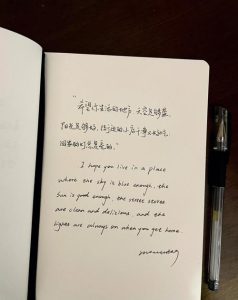 "希望你生活的地方，天空足够蓝，
阳光足够好，街边的小店干净又好吃，
回家的时候总是亮的。"
"I hope you live in a place
where the sky is blue enough, the
sun is good enough, the street stores
are clean and delicious, and the
lights are always on when you get home.